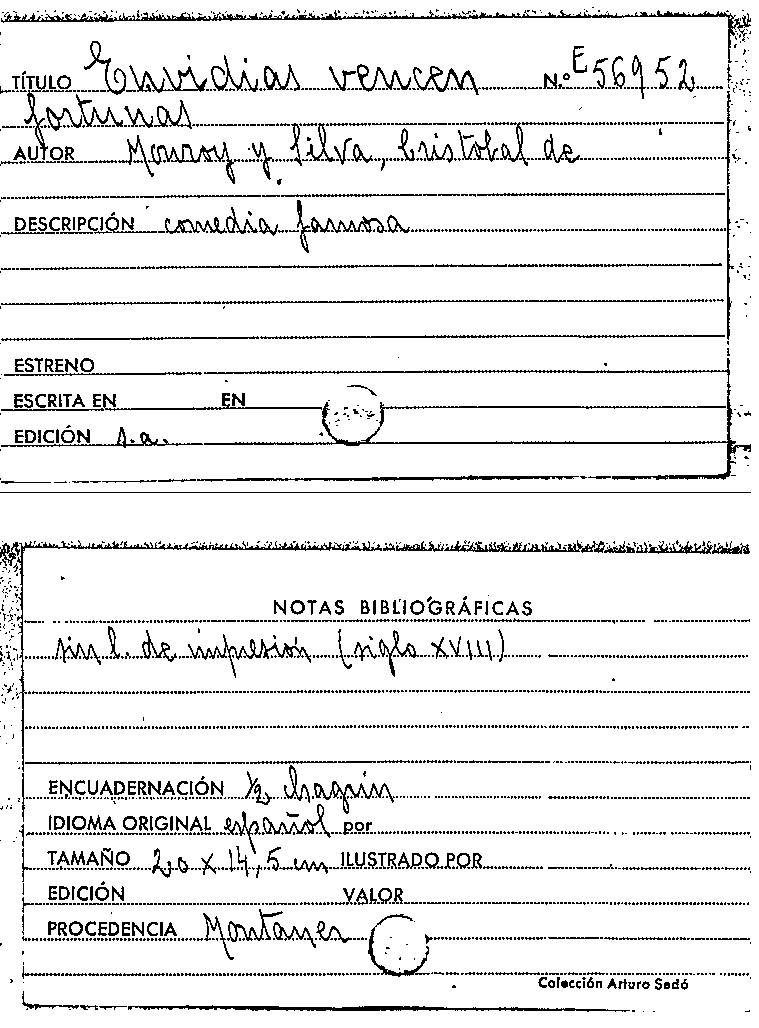 TÍTULO Envidias vencen N.º E56952
fortunas
AUTOR Monroy y Silva, Cristobal de
DESCRIPCIÓN comedia famosa
ESTRENO
ESCRITA EN EN
EDICIÓN s.a.
NOTAS BIBLIOGRÁFICAS
sin l. de impresión (siglo XVIII)
ENCUADERNACIÓN 1/2 chagrin
IDIOMA ORIGINAL español por
TAMAÑO 20 x 14,5 cm ILUSTRADO POR
EDICIÓN VALOR
PROCEDENCIA Montaner
Colección Arturo Sedó